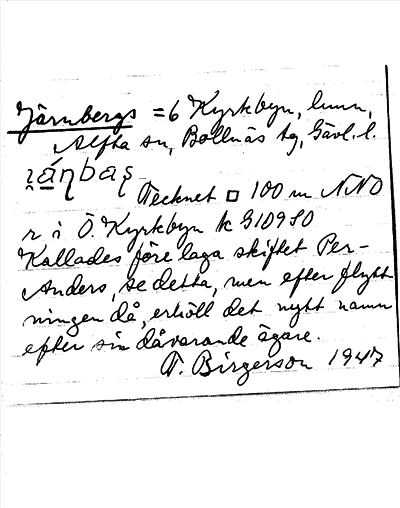 Järnbergs = 6 Kyrkbyn, hmn,
Alfta sn, Bollnäs tg, Gävl. l.
Tecknet □ 100 m NNO
r i Ö. Kyrkbyn k G10980
Kallades före laga skiftet Per-
Anders, se detta, men efter flytt-
ningen då, erhöll det nytt namn
efter sin dåvarande ägare.
T. Birgerson 1947